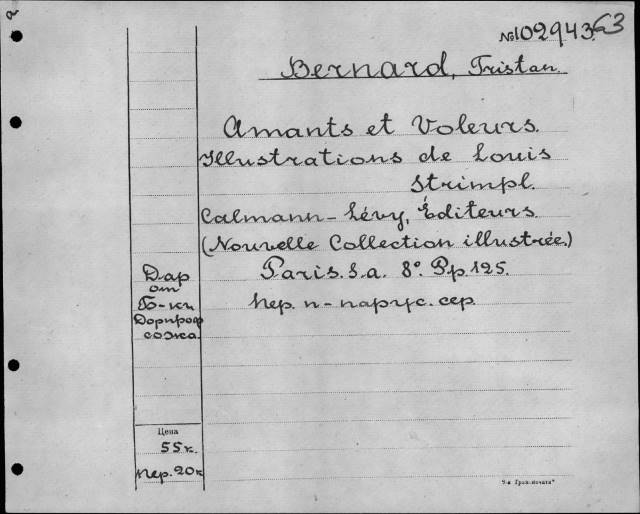 №102943 63
Bernard, Tristan.
Amants et Voleurs.
Illustrations de Louis
Strimpl.
Calmann-Lévy, Éditeurs.
(Nouvelle Collection illustrée.)
Paris. S.a. 8° Pp. 125.
пер. п-парус. сер.
Дар
от
Б-ки
Дорпроф
сожа
Цена
55к.
пер. 20к